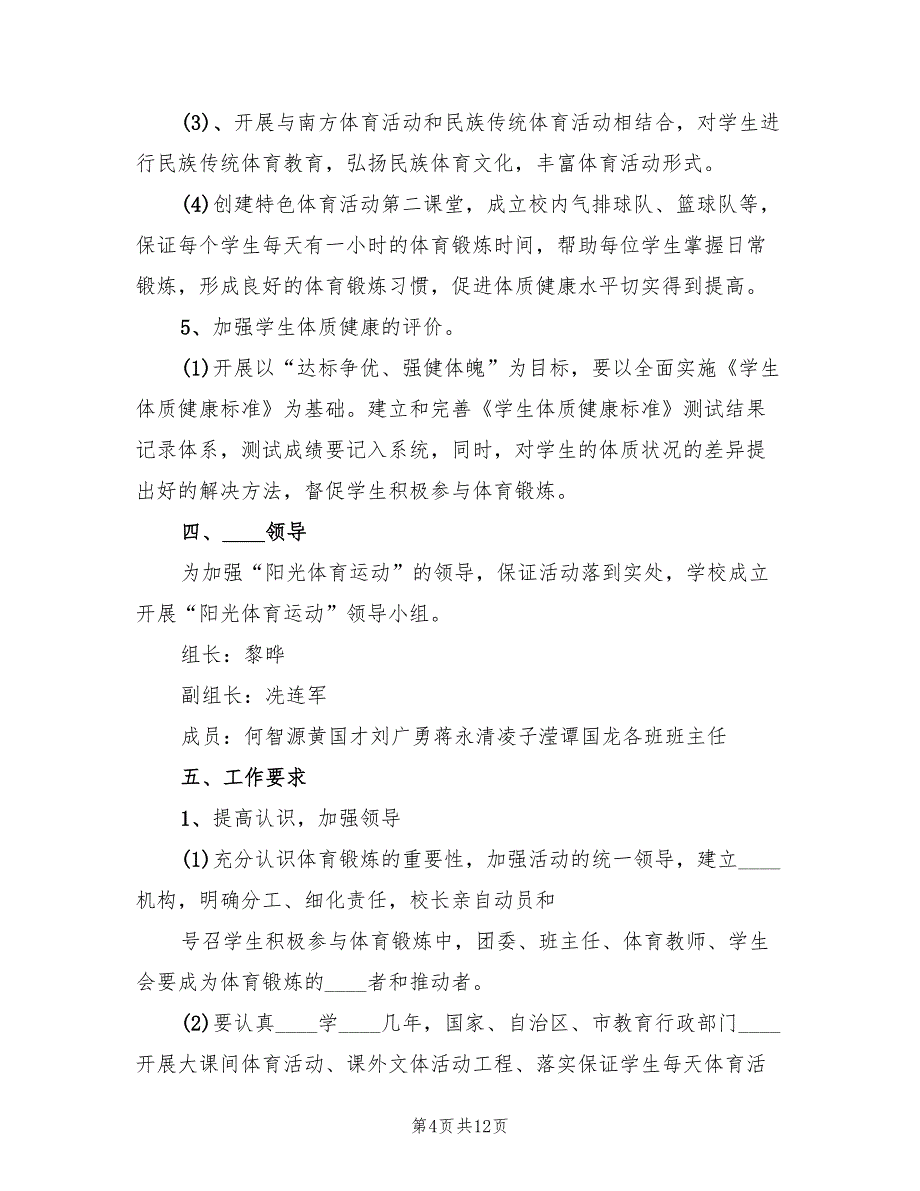 (3)、开展与南方体育活动和民族传统体育活动相结合，对学生进
行民族传统体育教育，弘扬民族体育文化，丰富体育活动形式。
(4)创建特色体育活动第二课堂，成立校内气排球队、篮球队等，
保证每个学生每天有一小时的体育锻炼时间，帮助每位学生掌握日常
锻炼，形成良好的体育锻炼习惯，促进体质健康水平切实得到提高。
5、加强学生体质健康的评价。
(1)开展以“达标争优、强健体魄”为目标，要以全面实施《学生
体质健康标准》为基础。建立和完善《学生体质健康标准》测试结果
记录体系，测试成绩要记入系统，同时，对学生的体质状况的差异提
出好的解决方法，督促学生积极参与体育锻炼。
四、____领导
为加强“阳光体育运动”的领导，保证活动落到实处，学校成立
开展“阳光体育运动”领导小组。
组长：黎晔
副组长：冼连军
成员：何智源黄国才刘广勇蒋永清凌子滢谭国龙各班班主任
五、工作要求
1、提高认识，加强领导
(1)充分认识体育锻炼的重要性，加强活动的统一领导，建立____
机构，明确分工、细化责任，校长亲自动员和
号召学生积极参与体育锻炼中，团委、班主任、体育教师、学生
会要成为体育锻炼的____者和推动者。
(2)要认真____学____几年，国家、自治区、市教育行政部门____
开展大课间体育活动、课外文体活动工程、落实保证学生每天体育活
第4页共12页